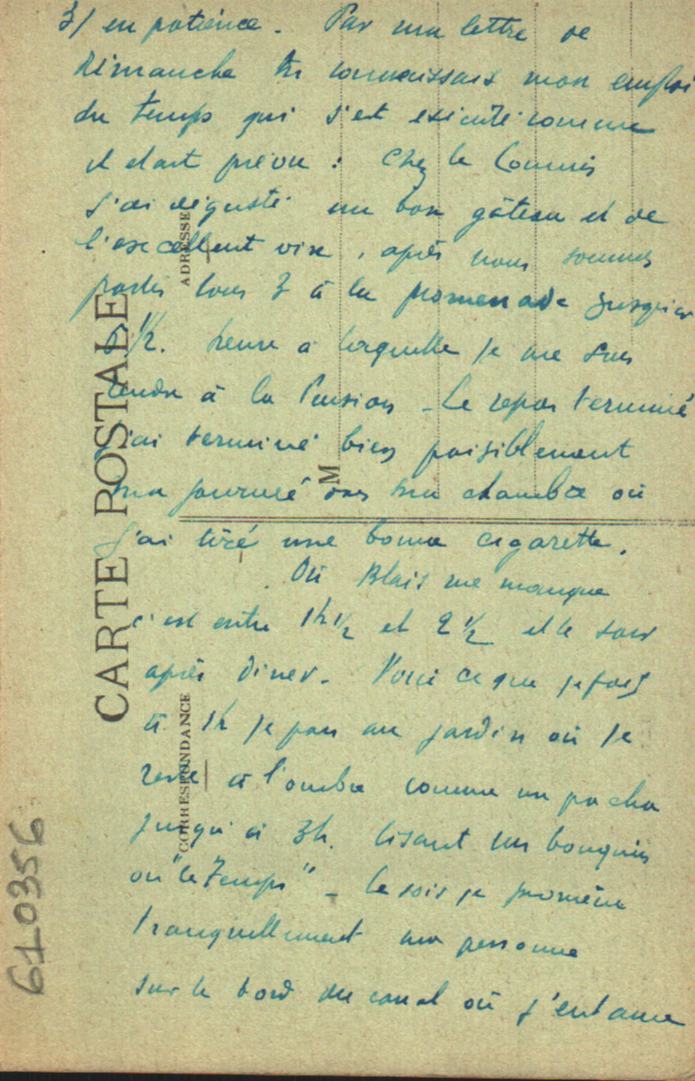 3/ en patience. Par ma lettre de
Dimanche tu connaissais mon emploi
du temps qui s'est exécuté comme
il était prévu : chez le Commis
j'ai dégusté un bon gâteau et de
l'excellent vin, après nous sommes
partis tous 3 à la promenade jusqu'à
1/2. heure à laquelle je me suis
rendu à la Pension - Le repas terminé
j'ai terminé bien paisiblement
ma journée dans ma chambre où
j'ai tiré une bonne cigarette.
Où Blais me manque
c'est entre 1h 1/2 et 2 1/2 et le soir
après diner. Voici ce que je fais
à 1h je pars au jardin où je
reste à l'ombre comme un pacha
jusqu'à 3h. lisant un bouquin
ou "le Temps" - le soir je promène
tranquillement ma personne
sur le bord du canal où j'entame
CARTE POSTALE
CORRESPONDANCE
ADRESSE
M
610356